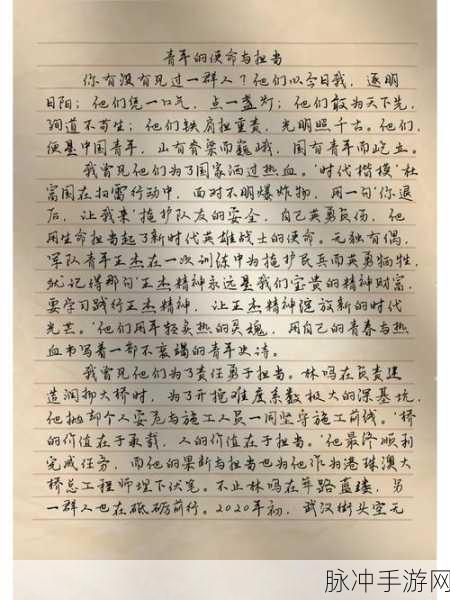 青年的使命与担当
你有没有见过一群人？他们以今日我，逐明
日阳；他们凭一口气，点一盏灯；他们敢为天下先，
殉道不苟生；他们铁肩担重责，光明照千古。他们，
便是中国青年，山有脊梁而巍峨，国有青年而屹立。
我曾见他们为了国家洒过热血。“时代楷模”杜
富国在扫雷行动中，面对不明爆炸物，用一句“你退
后，让我来”掩护队友的安全，自己英勇负伤，他
用生命担当起了新时代英雄战士的使命。无独有偶，
军队青年王杰在一次训练中为掩护民兵而英勇牺牲，
犹记得那句“王杰精神永远是我们宝贵的精神财富，
要学习践行王杰精神，让王杰精神绽放新的时代
光芒。”他们用年轻炙热的灵魂，用自己的青春与热
血书写着一部不衰竭的青年史诗。
我曾见他们为了责任勇于担当。林鸣在负责建
造润扬大桥时，为了开挖难度系数极大的深基坑，
他抛却个人安危与施工人员一同坚守施工前线。“桥
的价值在于承载，人的价值在于担当。”他最终顺利
完成任务，而他的果断与担当也为他作为港珠澳大
桥总工程师埋下伏笔。不止林鸣在筚路蓝缕，另
一群人也在砥砺前行。2020年初，武汉街头空无
脉冲手游网